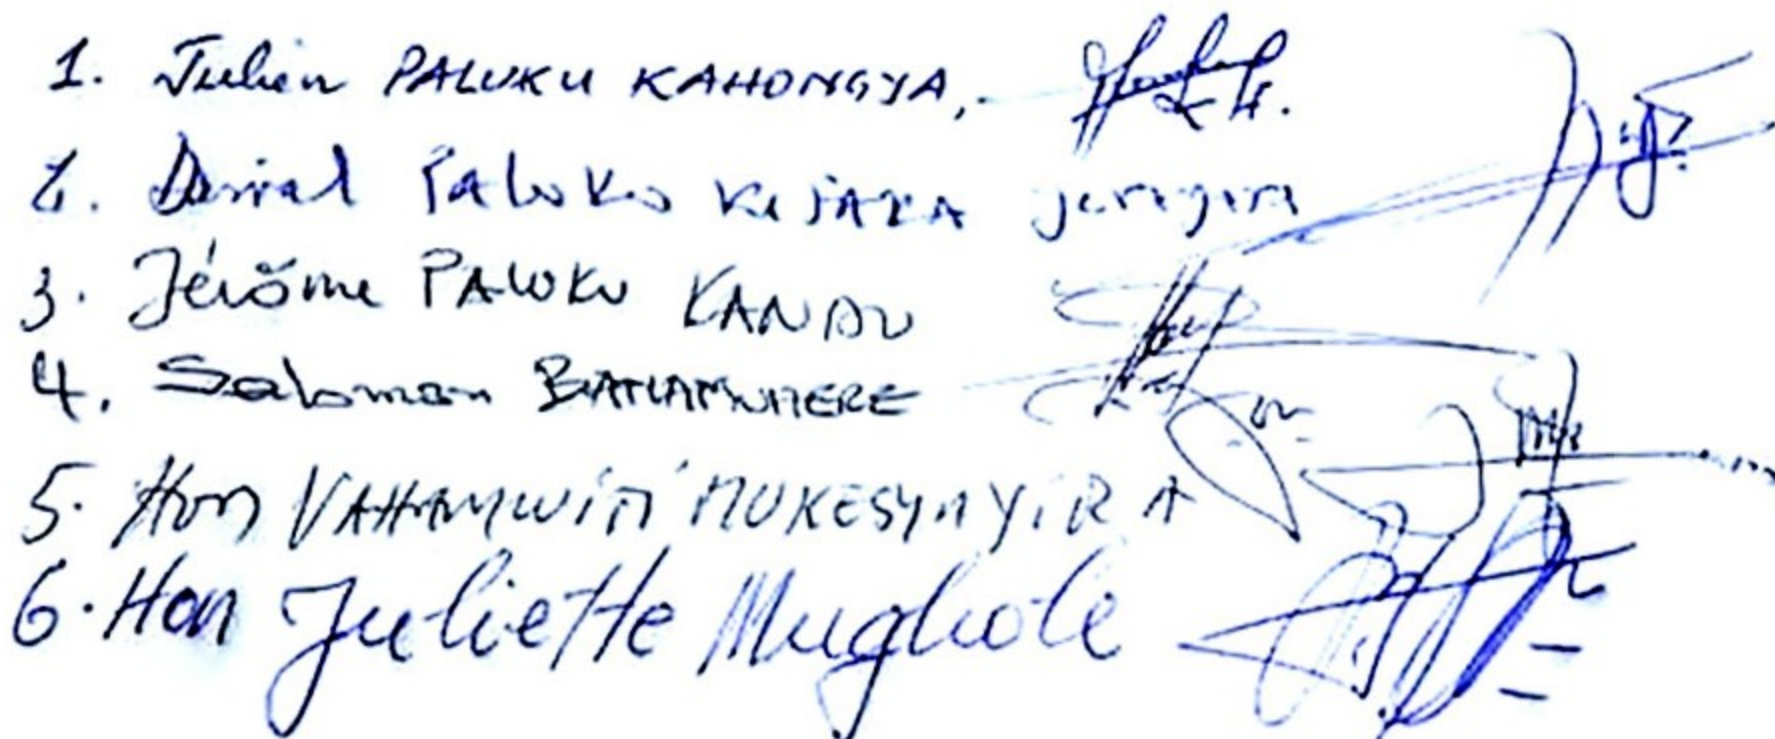 1. Julien PALUKU KAHONGYA,.
2. Daniel Paluku KISAKA yereyere
3. Jérôme PALUKU KANDU
4. Salomon BAHAMWHERE
5. Hon VAHAMWITI MUKESYAYIRA
6. Hon Juliette Mughole